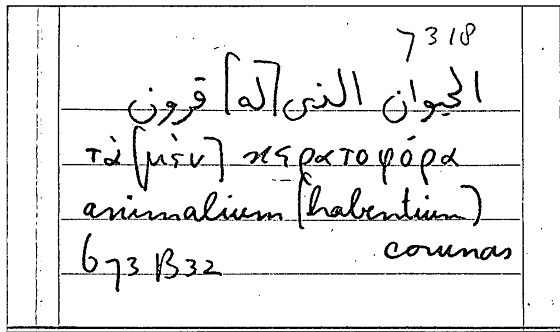 7318
الحيوان الذى [له] قرون
τὰ [μὲν] κερατοφόρα
animalium (habentium)
cornuas
673 B32